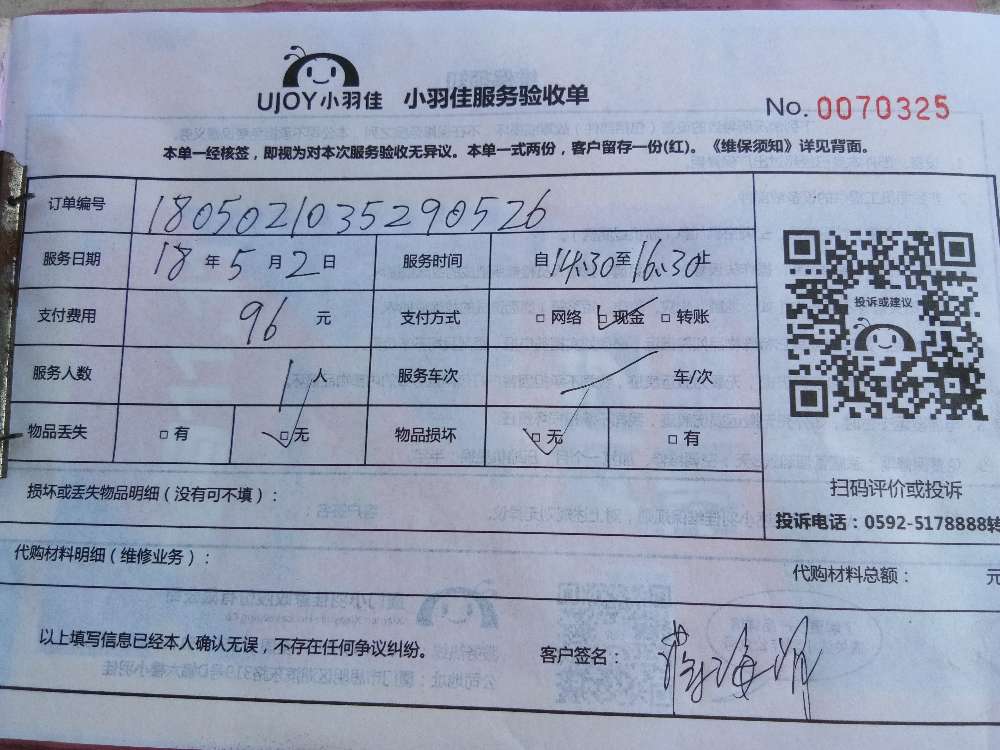 UJOY小羽佳 小羽佳服务验收单
No. 0070325
本单一经核签，即视为对本次服务验收无异议。本单一式两份，客户留存一份(红)。《维保须知》详见背面。
订单编号 1805021035290526
服务日期 18 年 5 月 2 日 服务时间 自14:30至16:30止
支付费用 96 元 支付方式 □ 网络 □ 现金 □ 转账
投诉或建议
服务人数 1 人 服务车次 车/次
物品丢失 □ 有 □ 无 物品损坏 □ 无 □ 有
扫码评价或投诉
损坏或丢失物品明细（没有可不填）：
投诉电话：0592-5178888转
代购材料明细（维修业务）：
代购材料总额： 元
以上填写信息已经本人确认无误，不存在任何争议纠纷。
客户签名：